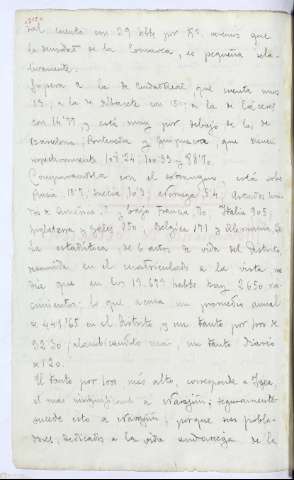 cuenta con 29 habts por K2. vemos que
la densidad de la Comarca, es pequeña rela-
tivamente.
Supera a la de Ciudad Real, que cuenta unos
15; a la de Albacete con 15; a la de Cáceres
con 14'77 y está muy por debajo de la de
Barcelona, Pontevedra y Guipuzcoa, que tienen
respectivamente 107.24, 100.33 y 88'70.
Comparándola con el extranjero, está sobre
Rusia, 18'2, Suecia 10'3, Noruega 5.4, Estados Uni-
dos de América, y bajo Francia 70, Italia 905,
Inglaterra y Gales, 250, Bélgica 171 y Alemania
La estadística de 6 años de vida del Distrito
en el matriculado a la vista
dice que en los 19.677 habts hay 2650 na-
cimientos: lo que acusa un promedio anual
de 441'65 en el Distrito y un tanto por 1000 de
22'30, más, un tanto diario
1'20.
El tanto por 1000 más alto, corresponde a
el más insignificante a seguramente
sucede esto a porque sus pobla-
dores, dedicados a la vida andariega de la